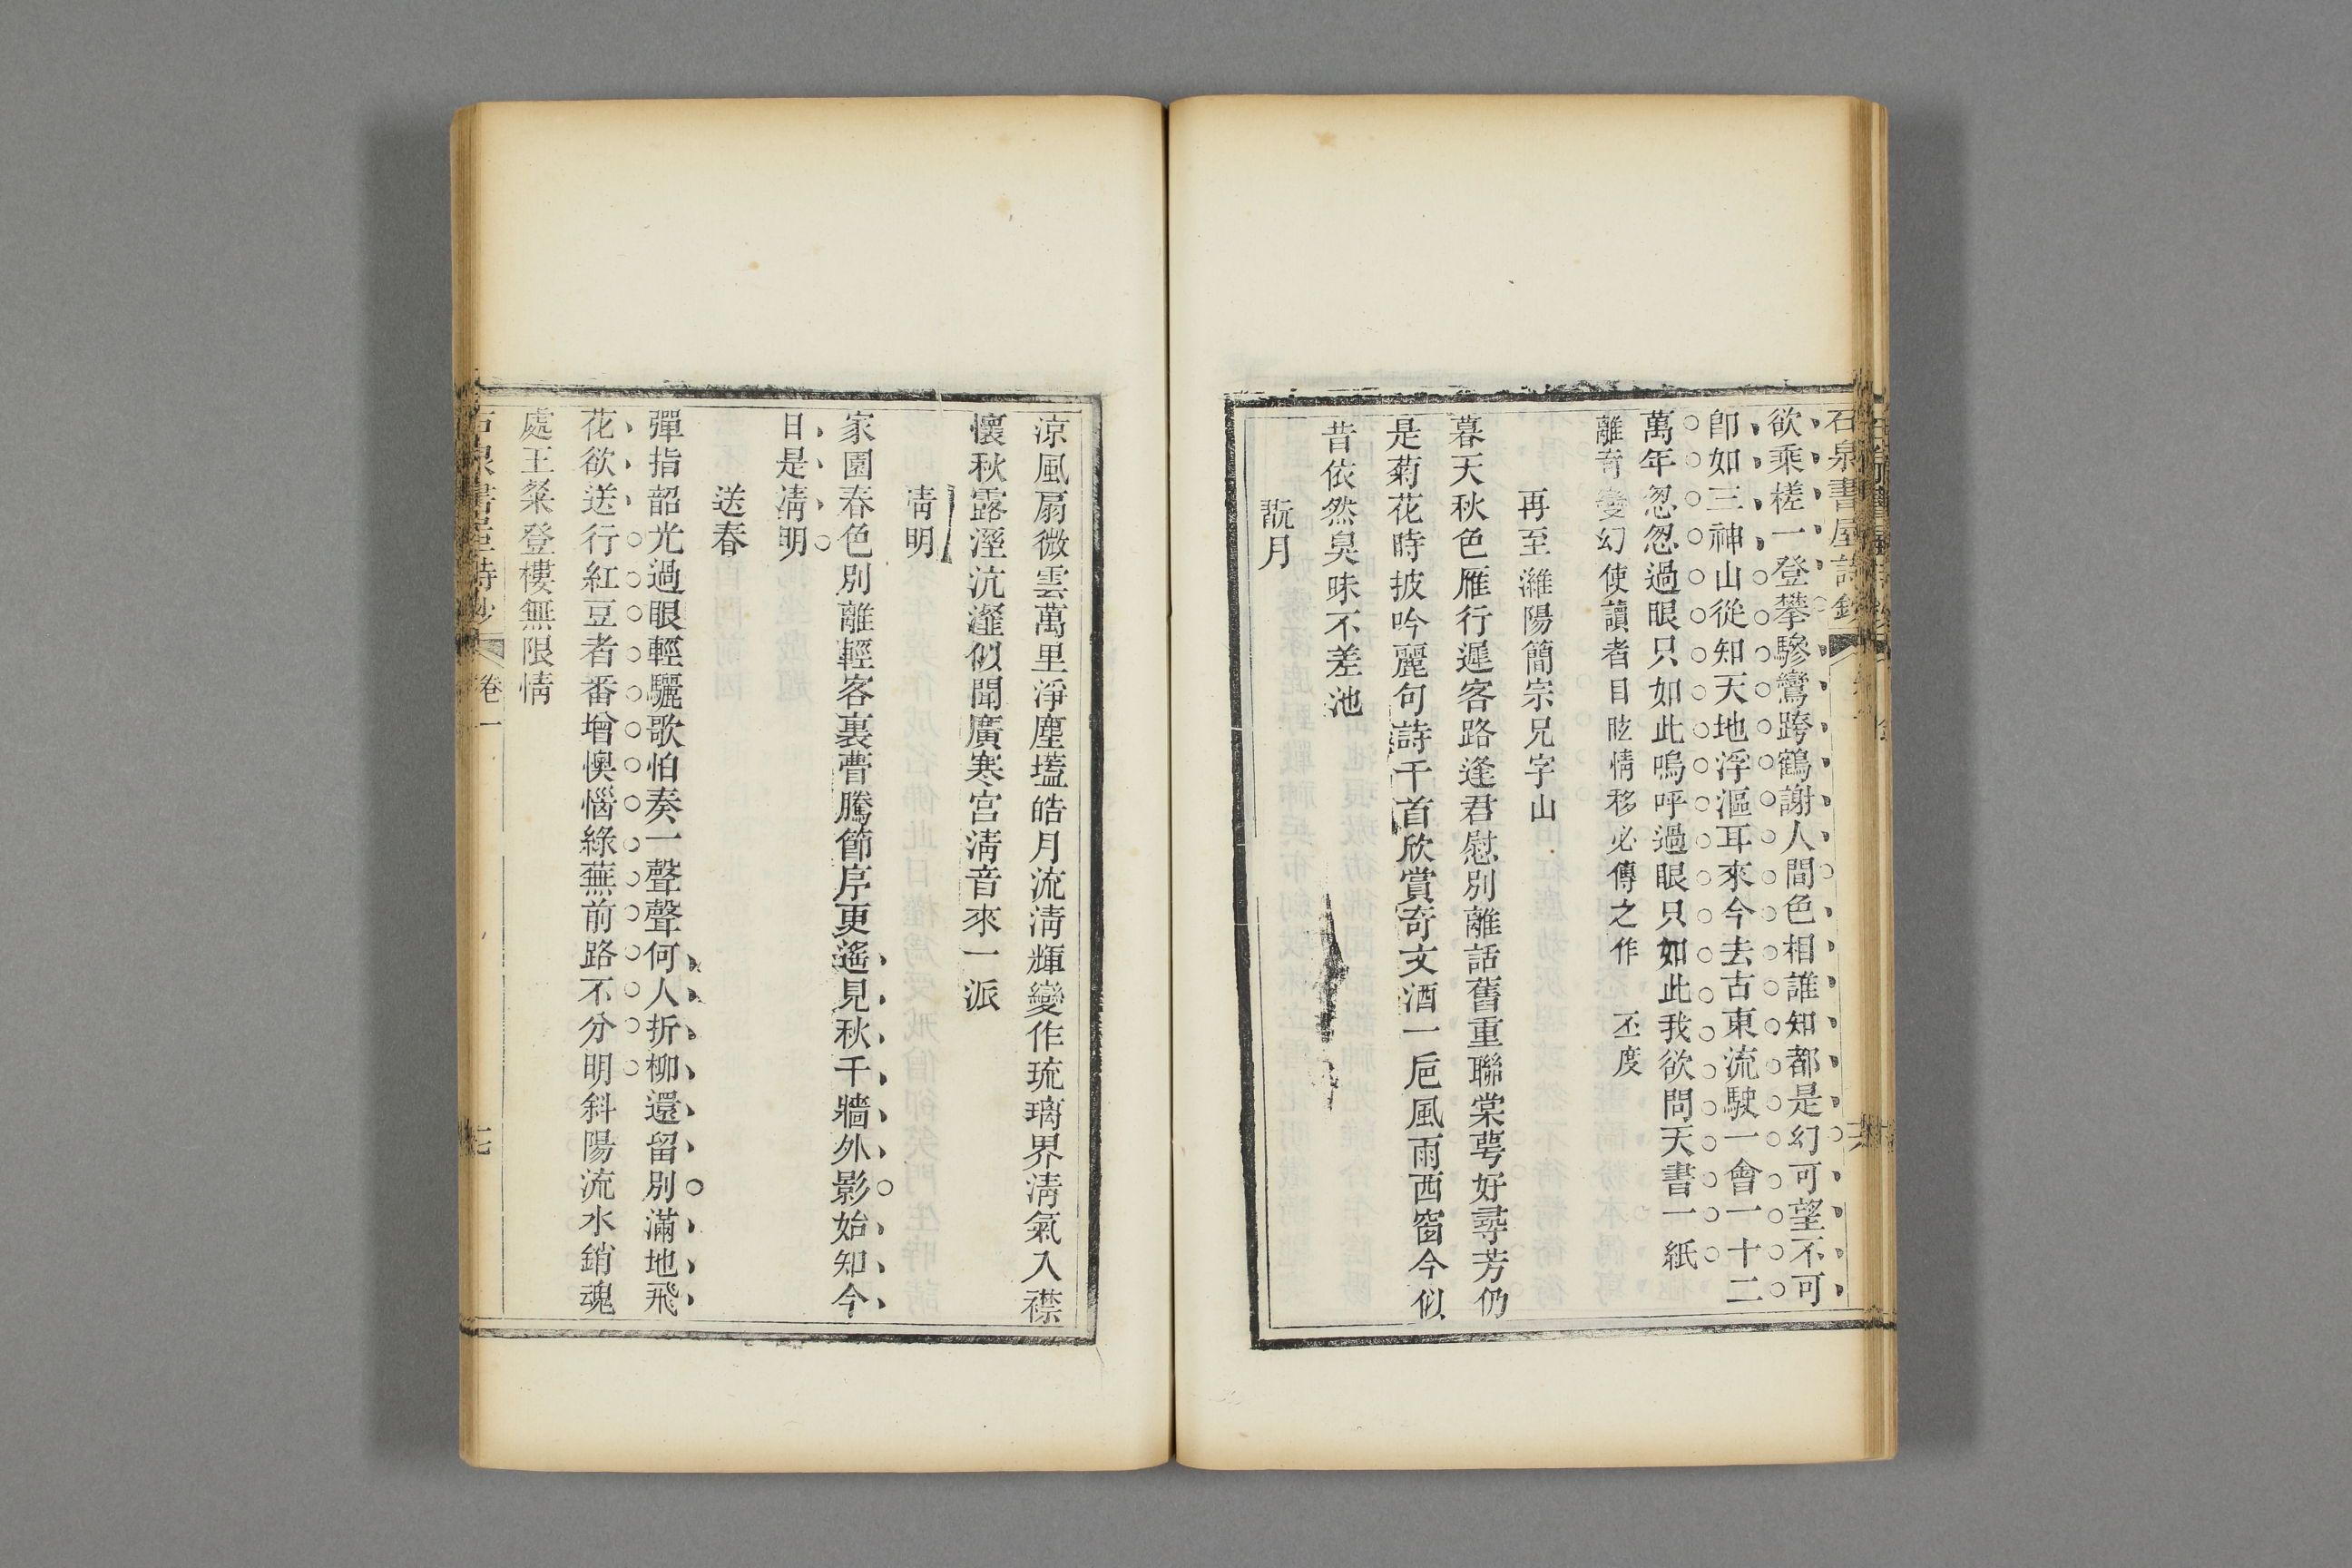 石泉書屋詩鈔
欲乘槎一登攀驂鸞跨鶴謝人間色相誰知都是幻可望不可
卽如三神山從知天地浮漚耳來今去古東流駛一會一十二
萬年忽忽過眼只如此嗚呼過眼只如此我欲問天書一紙
離奇變幻使讀者目眩情移必傳之作 丕度
再至濰陽簡宗兄字山
暮天秋色雁行遲客路逢君慰別離話舊重聯棠萼好尋芳仍
是菊花時披吟麗句詩千首欣賞奇文酒一卮風雨西窗今似
昔依然臭味不差池
翫月
涼風扇微雲萬里淨塵壒皓月流淸輝變作琉璃界淸氣入襟
懷秋露溼沆瀣似聞廣寒宮淸音來一派
淸明
家園春色別離輕客裏瞢騰節序更遙見秋千牆外影始知今
日是淸明
送春
彈指韶光過眼輕驪歌怕奏一聲聲何人折柳還留別滿地飛
花欲送行紅豆者番增懊惱綠蕪前路不分明斜陽流水銷魂
處王粲登樓無限情
石泉書屋詩鈔 卷一